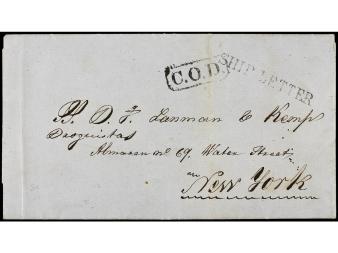 C.O.D.
SHIP LETTER
D. T. Lanman & Kemp
Droguistas
Almacen No 69. Water Street
en New York